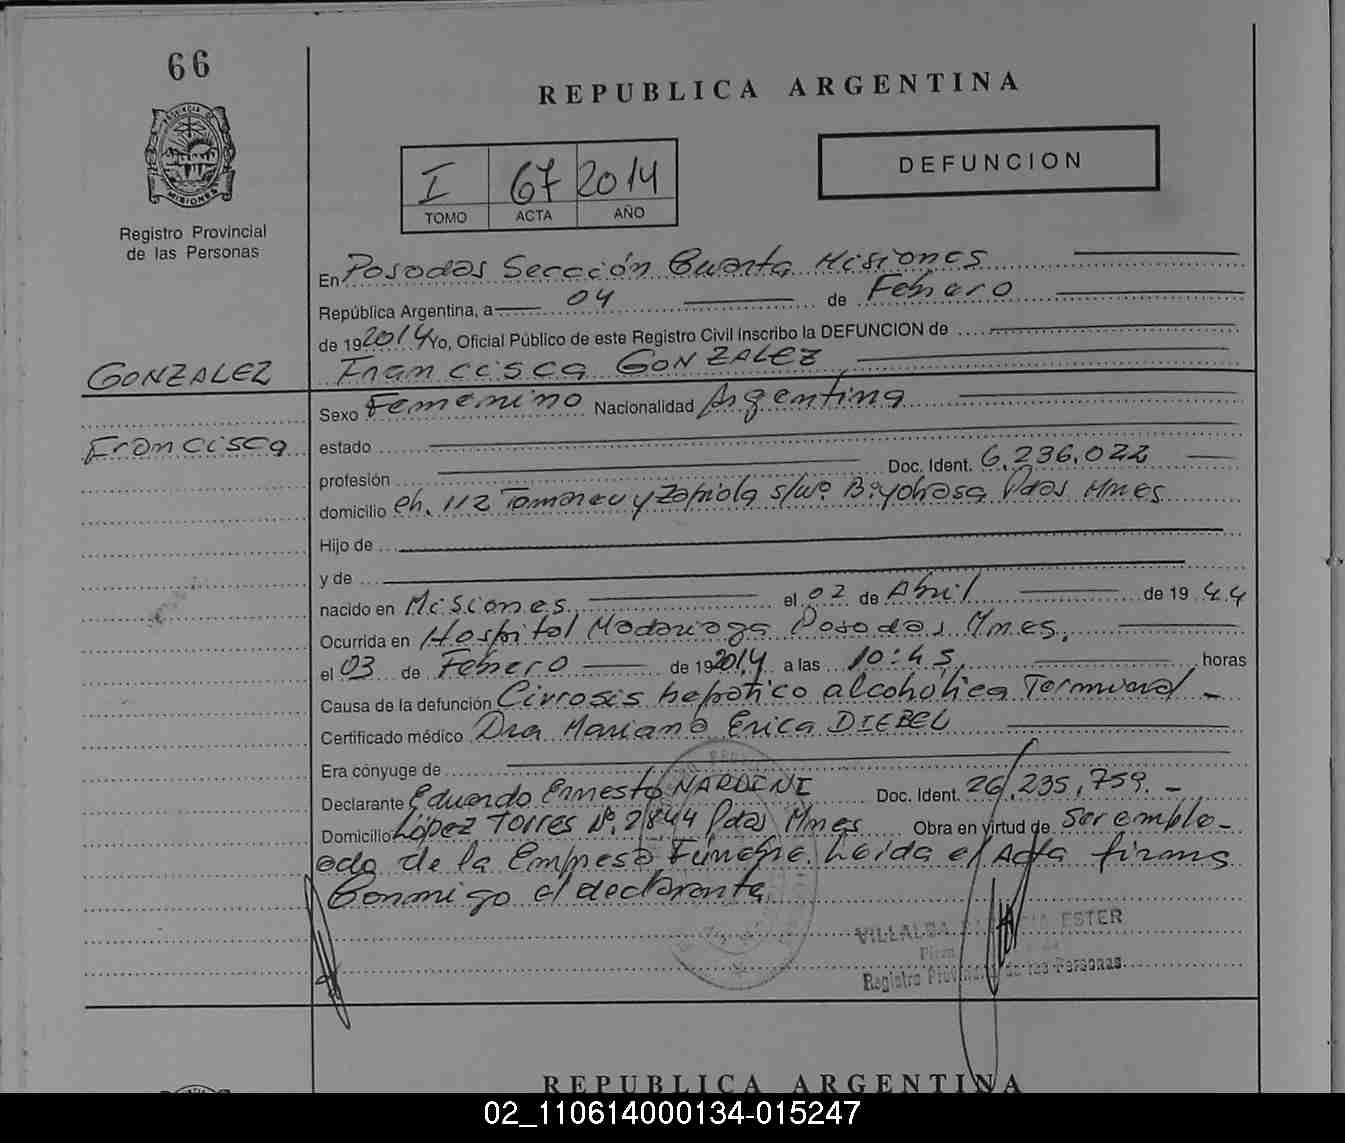 66
REPUBLICA ARGENTINA
DEFUNCION
I 67 2014
TOMO ACTA AÑO
PROVINCIA DE
MISIONES
Registro Provincial
de las Personas
En Posadas Sección Cuarta Misiones
República Argentina, a 04 de Febrero
de 192014 Yo, Oficial Público de este Registro Civil inscribo la DEFUNCION de
GONZALEZ
Francisca GONZALEZ
Sexo Femenino Nacionalidad Argentina
Francisca
estado
profesión Doc. Ident. 6.236.022
domicilio Ch. 112 y Zapiola s/Nº Pdas Mnes
Hijo de
y de
nacido en Misiones el 02 de Abril de 1944
Ocurrida en Hospital Madariaga Posadas Mnes,
el 03 de Febrero de 192014 a las 10:45 horas
Causa de la defunción Cirrosis hepatico alcoholica Terminal -
Certificado médico Dra Mariana Erica DIEBEL
Era cónyuge de
Declarante Eduardo Ernesto NARDINI Doc. Ident. 26,235,759. -
Domicilio López Torres Nº 2844 Pdas Mnes Obra en virtud de Ser emple-
ado de la Empresa Funebre. Leida el Acta firma
Conmigo el declarante
VILLALBA ESTER
Registro Provincial de las Personas
REPUBLICA ARGENTINA
02_110614000134-015247